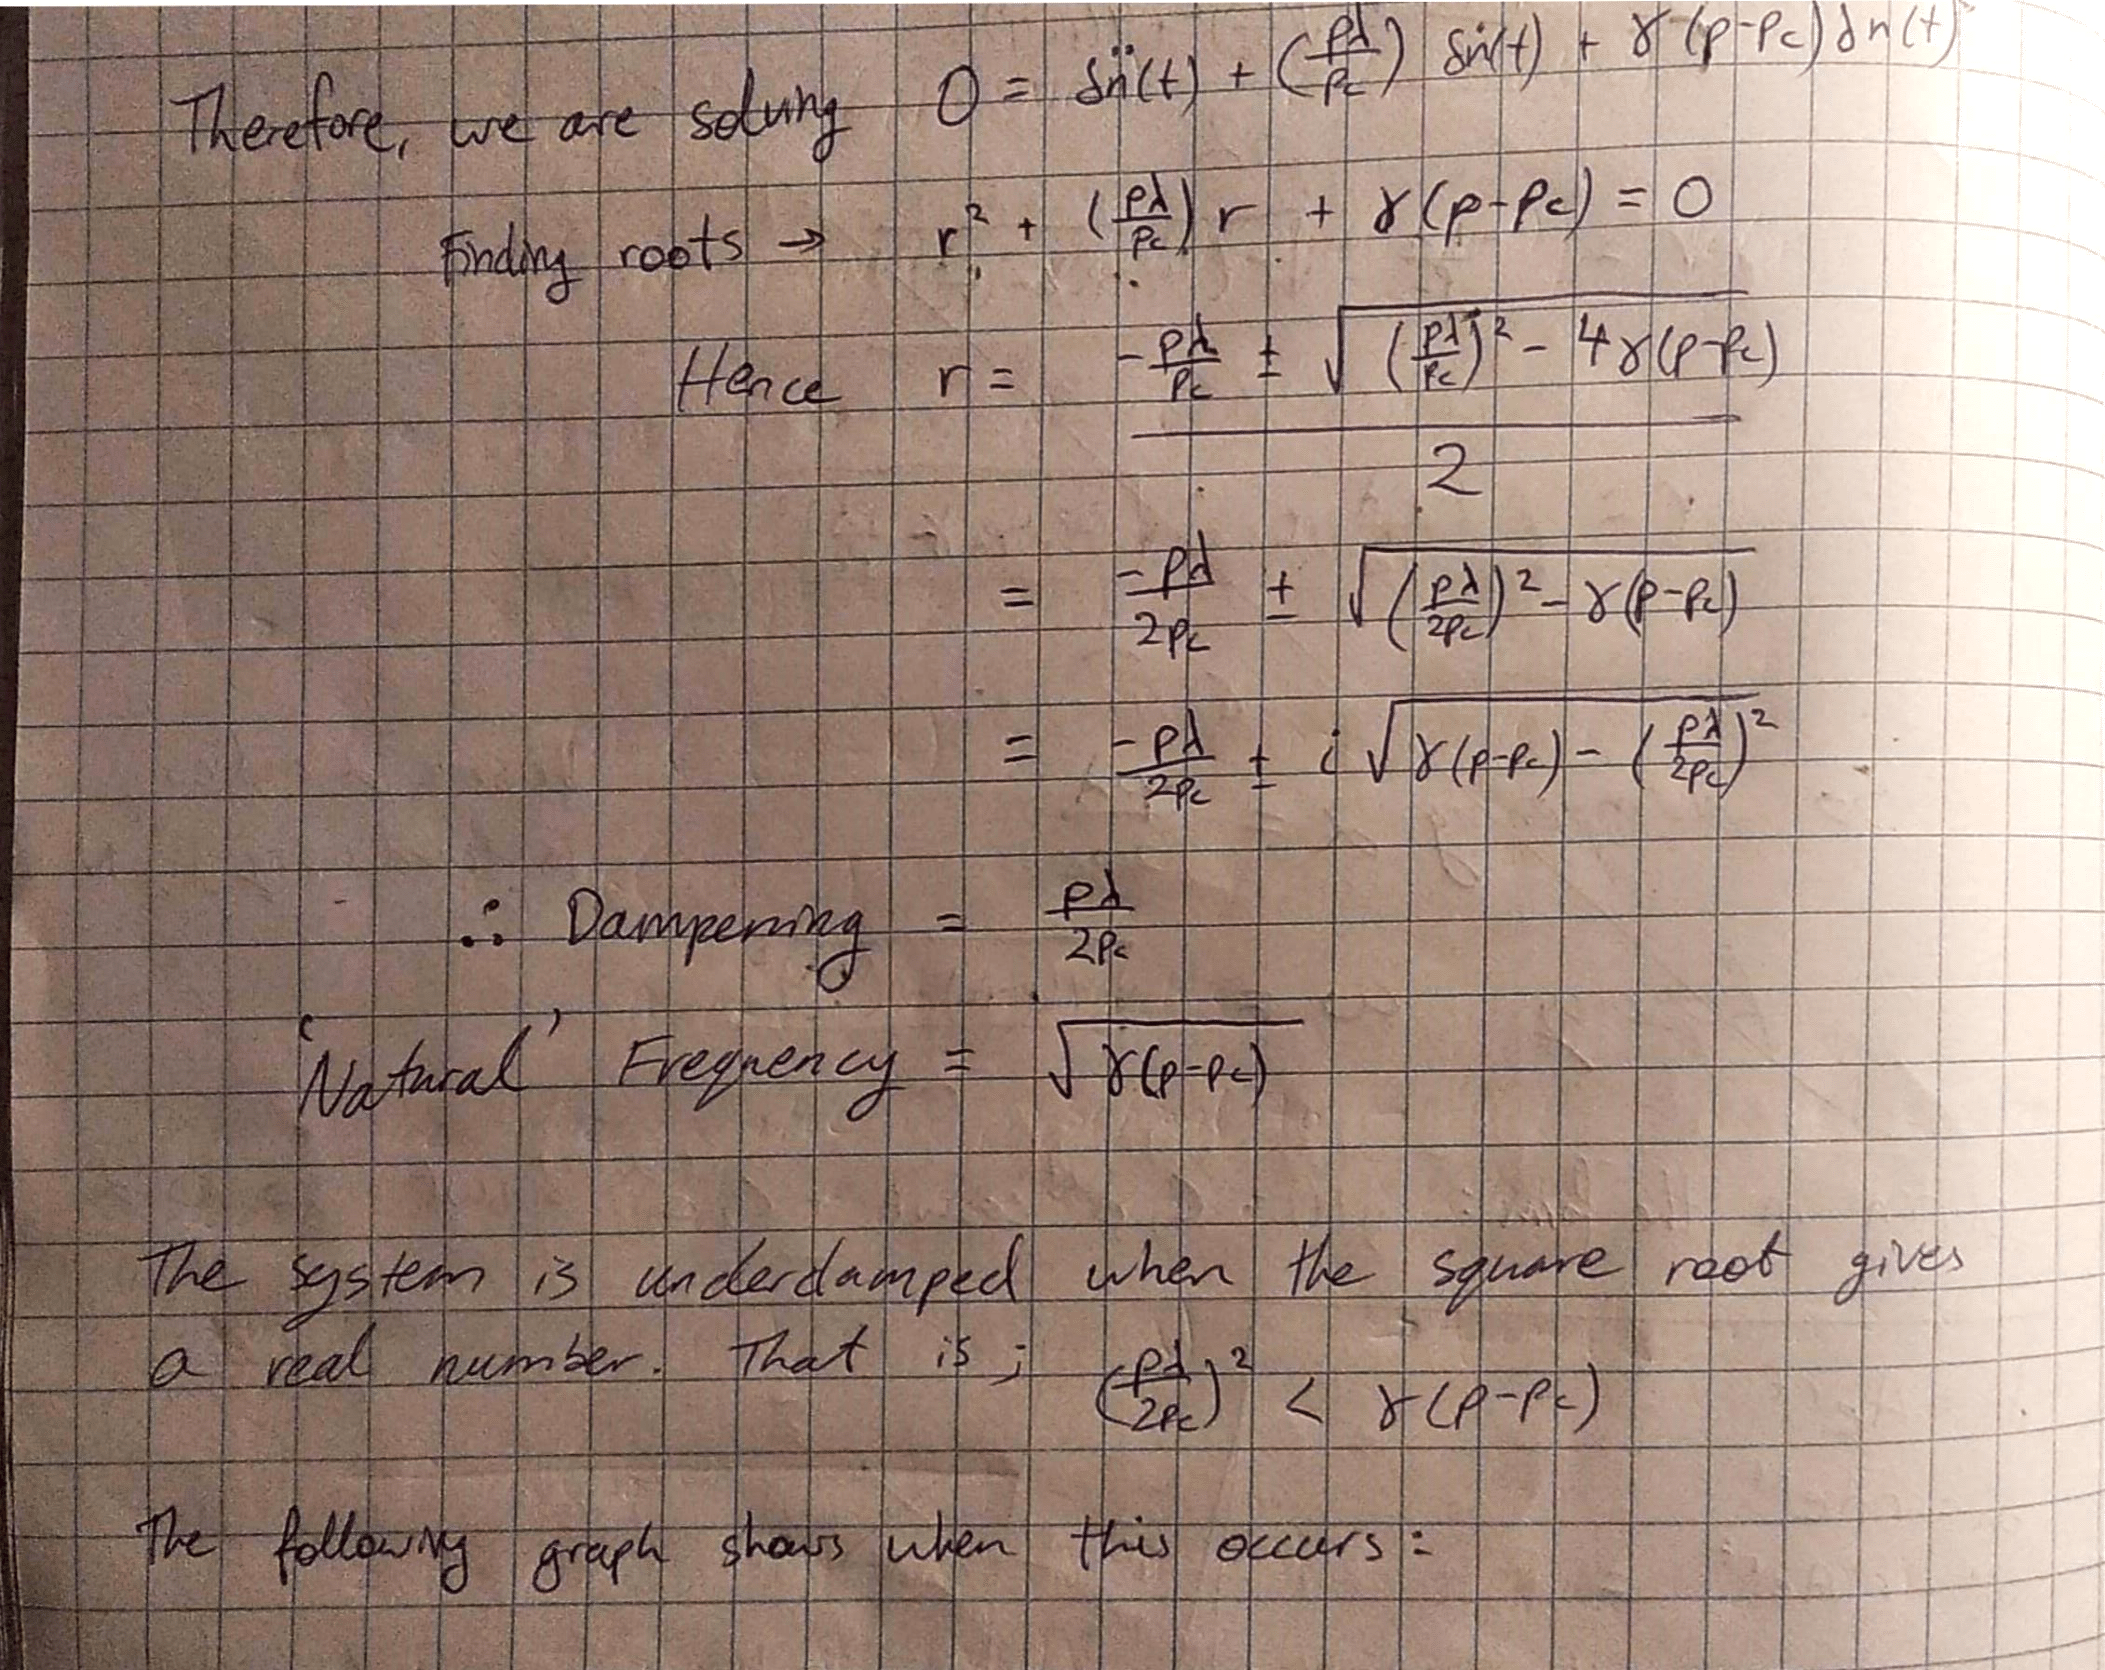 Therefore, we are solving 0 = δn̈(t) + (pλ/pc) δṅ(t) + γ(p-pc)δn(t)
Finding roots → r² + (pλ/pc) r + γ(p-pc) = 0
Hence r = (-pλ/pc ± √((pλ/pc)² - 4γ(p-pc))) / 2
= -pλ/2pc ± √((pλ/2pc)² - γ(p-pc))
= -pλ/2pc ± i √(γ(p-pc) - (pλ/2pc)²)
∴ Dampening = pλ/2pc
'Natural' Frequency = √(γ(p-pc))
The system is underdamped when the square root gives
a real number. That is; (pλ/2pc)² < γ(p-pc)
The following graph shows when this occurs: